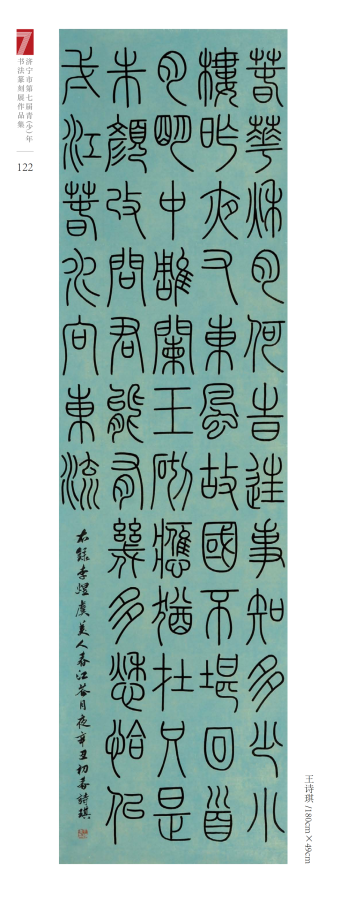 春華秋月何時往事知多少小
樓昨夜又東風故國不堪回首
月明中雕闌玉砌應猶在只是
朱顏改問君能有幾多愁恰佀
弌江春水向東流
右錄李煜虞美人春江花月夜辛丑初春詩琪
济宁市第七届青(少)年
书法篆刻展作品集
122
王诗琪 /180cm×49cm